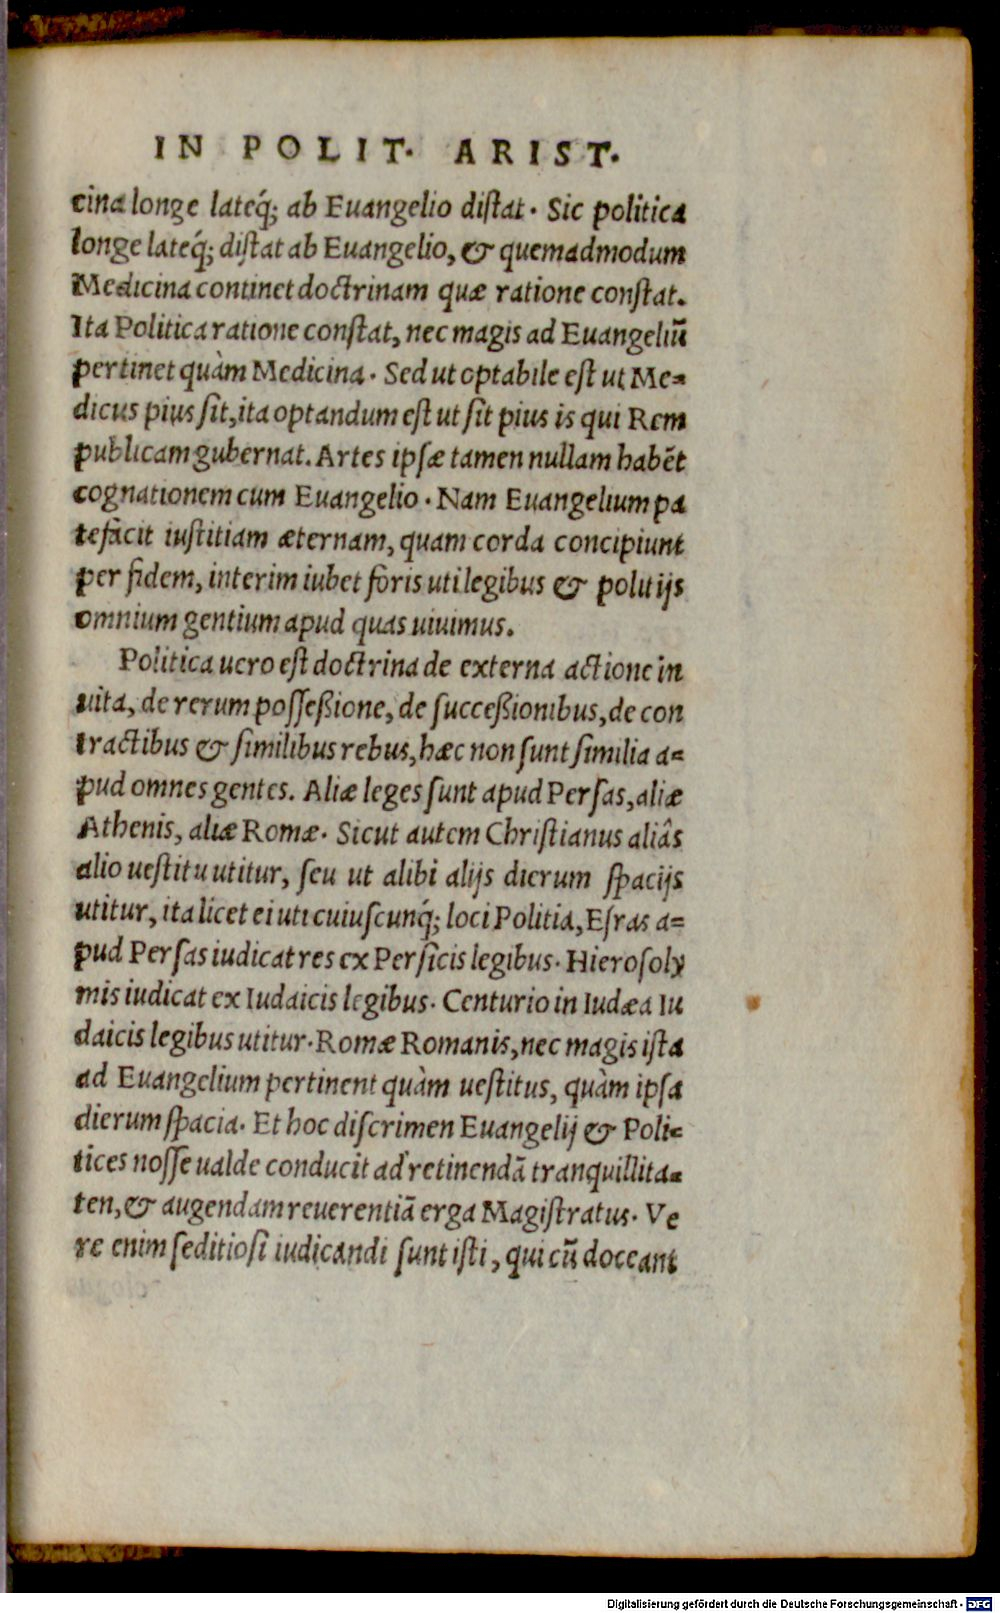 IN POLIT. ARIST.
cina longe lateq́; ab Euangelio distat. Sic politica
longe lateq́; distat ab Euangelio, & quemadmodum
Medicina continet doctrinam quæ ratione constat.
Ita Politica ratione constat, nec magis ad Euangeliū
pertinet quàm Medicina. Sed ut optabile est ut Me=
dicus pius sit, ita optandum est ut sit pius is qui Rem
publicam gubernat. Artes ipsæ tamen nullam habēt
cognationem cum Euangelio. Nam Euangelium pa
tefacit iustitiam æternam, quam corda concipiunt
per fidem, interim iubet foris uti legibus & politijs
omnium gentium apud quas uiuimus.
Politica uero est doctrina de externa actione in
uita, de rerum posseßione, de succeßionibus, de con
tractibus & similibus rebus, hæc non sunt similia a=
pud omnes gentes. Aliæ leges sunt apud Persas, aliæ
Athenis, aliæ Romæ. Sicut autem Christianus aliâs
alio uestitu utitur, seu ut alibi alijs dierum spacijs
utitur, ita licet ei uti cuiuscunq́; loci Politia, Esras a=
pud Persas iudicat res ex Persicis legibus. Hierosoly
mis iudicat ex Iudaicis legibus. Centurio in Iudæa Iu
daicis legibus utitur. Romæ Romanis, nec magis ista
ad Euangelium pertinent quàm uestitus, quàm ipsa
dierum spacia. Et hoc discrimen Euangelij & Poli=
tices nosse ualde conducit ad retinendā tranquillita=
ten, & augendam reuerentiā erga Magistratus. Ve
re enim seditiosi iudicandi sunt isti, qui cū doceant
Digitalisierung gefördert durch die Deutsche Forschungsgemeinschaft - DFG